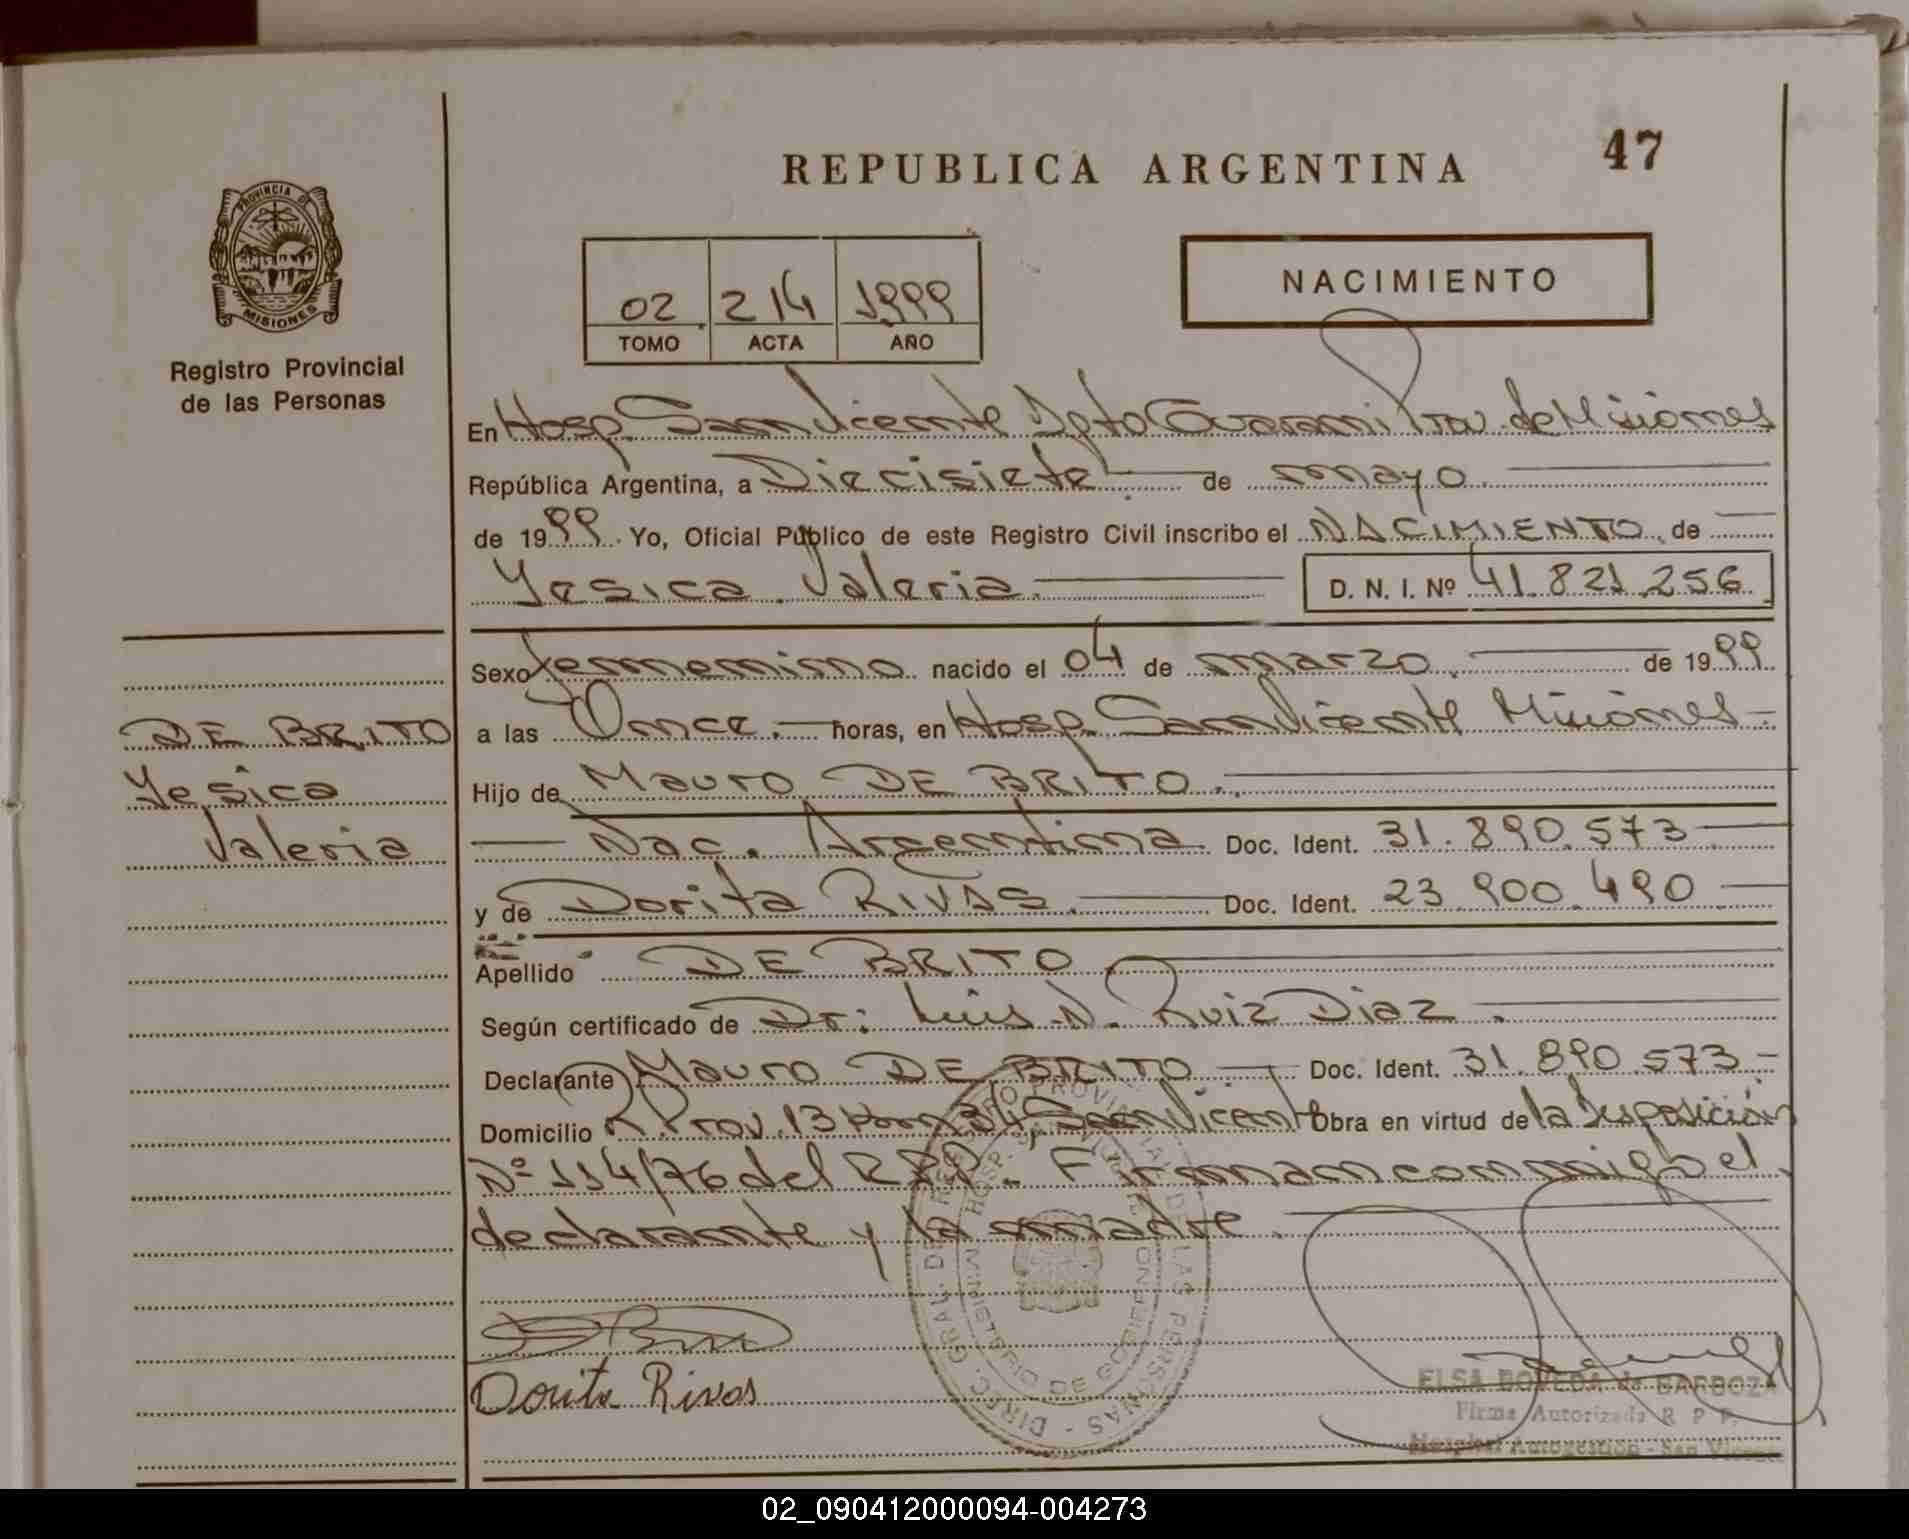 47
REPUBLICA ARGENTINA
NACIMIENTO
02 214 1999
TOMO ACTA AÑO
PROVINCIA DE
MISIONES
Registro Provincial
de las Personas
En Hosp. San Vicente Dpto Guarani Prov. de Misiones
República Argentina, a Diecisiete de mayo
de 1999. Yo, Oficial Público de este Registro Civil inscribo el NACIMIENTO de
Yesica Valeria. D. N. I. Nº 41.821.256
Sexo femenino nacido el 04 de marzo de 1999
a las Once. horas, en Hosp. San Vicente Misiones
Hijo de Mauro DE BRITO.
Nac. Argentina Doc. Ident. 31.890.573
y de Dorita RIVAS. Doc. Ident. 23.900.490
Apellido DE BRITO.
Según certificado de Dr: Luis N. Ruiz Diaz.
Declarante Mauro DE BRITO Doc. Ident. 31.890.573
Domicilio R. Prov. 13 Km 34, San Vicente Obra en virtud de la Disposición
Nº 114/76 del R.P.P. Firman conmigo el
declarante y la madre.
DE BRITO
Yesica
Valeria
Dorita Rivas
DIREC. GRAL. DE REGISTRO PROVINCIAL DE LAS PERSONAS
MINISTERIO DE GOBIERNO
HOSP. SAN VICENTE
ELSA BOVEDA de BARBOZA
Firma Autorizada R P P.
Hospital Autogestión - San Vicente
02_090412000094-004273